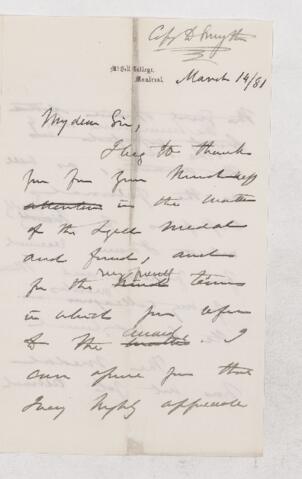 Copy D Smythe
McGill College,
Montreal.
March 14/81
My dear Sir,
I beg to thank
you for your kindness
attention in the matter
of the Lyell medal
and fund, and
for the very kind terms
in which you refer
to the award. I
can assure you that
I very highly appreciate